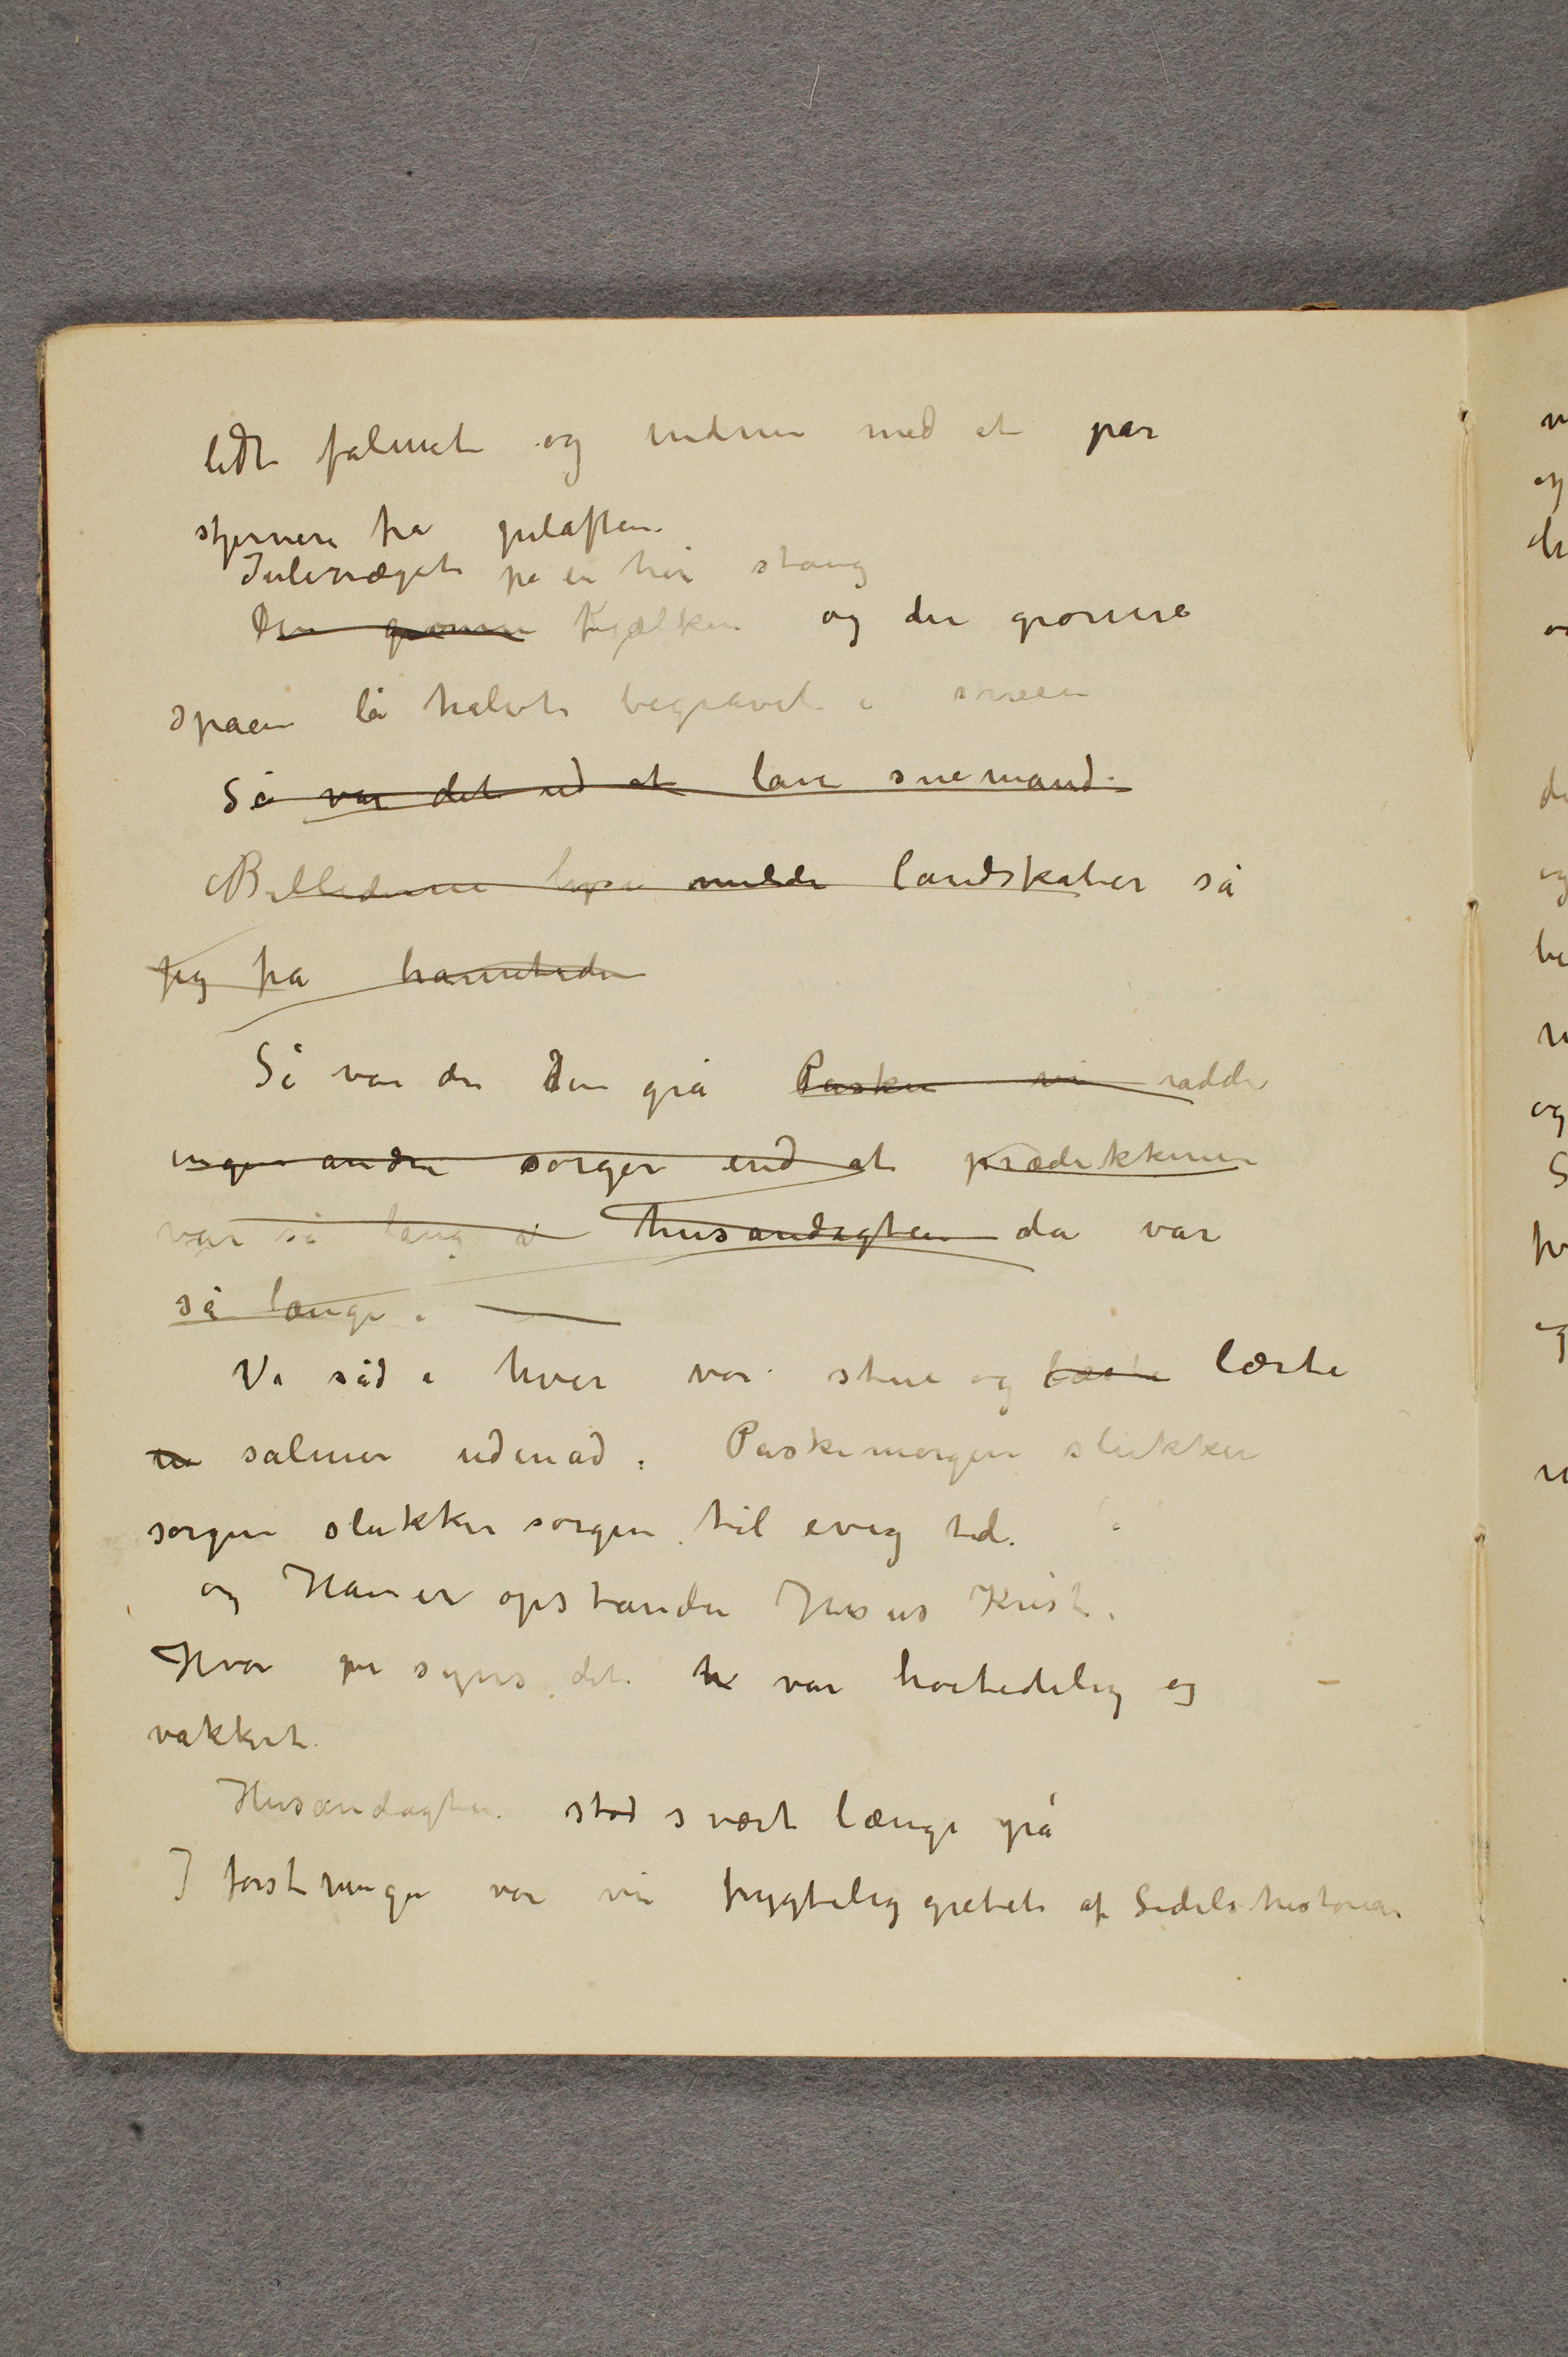 lidt falmet og endnu med et par
stjerner fra juleaften.
Juleneget på en høi stang
Den grønne Kjælken og den grønne
spaen lå halvt begravet i sneen
Så var det ud at lave snemand.
Billederne lyse milde landskaber så
jeg fra barnetiden
Så var der den grå Pasken vi havde
ingen andre sorger end at prædikkenen
var så lang at husandagten da var
så længe.
Vi sad i hver vor stue og læste lærte
en salmer udenad: Paskemorgen slukker
sorgen slukker sorgen til evig tid.
og Han er opstanden Jesus Krist.
Hvor jei synes det h var høitidelig og
vakkert.
Husandagten stod svært længe på
I forstninger var vi frygtelig grebet af Lidelshistorien